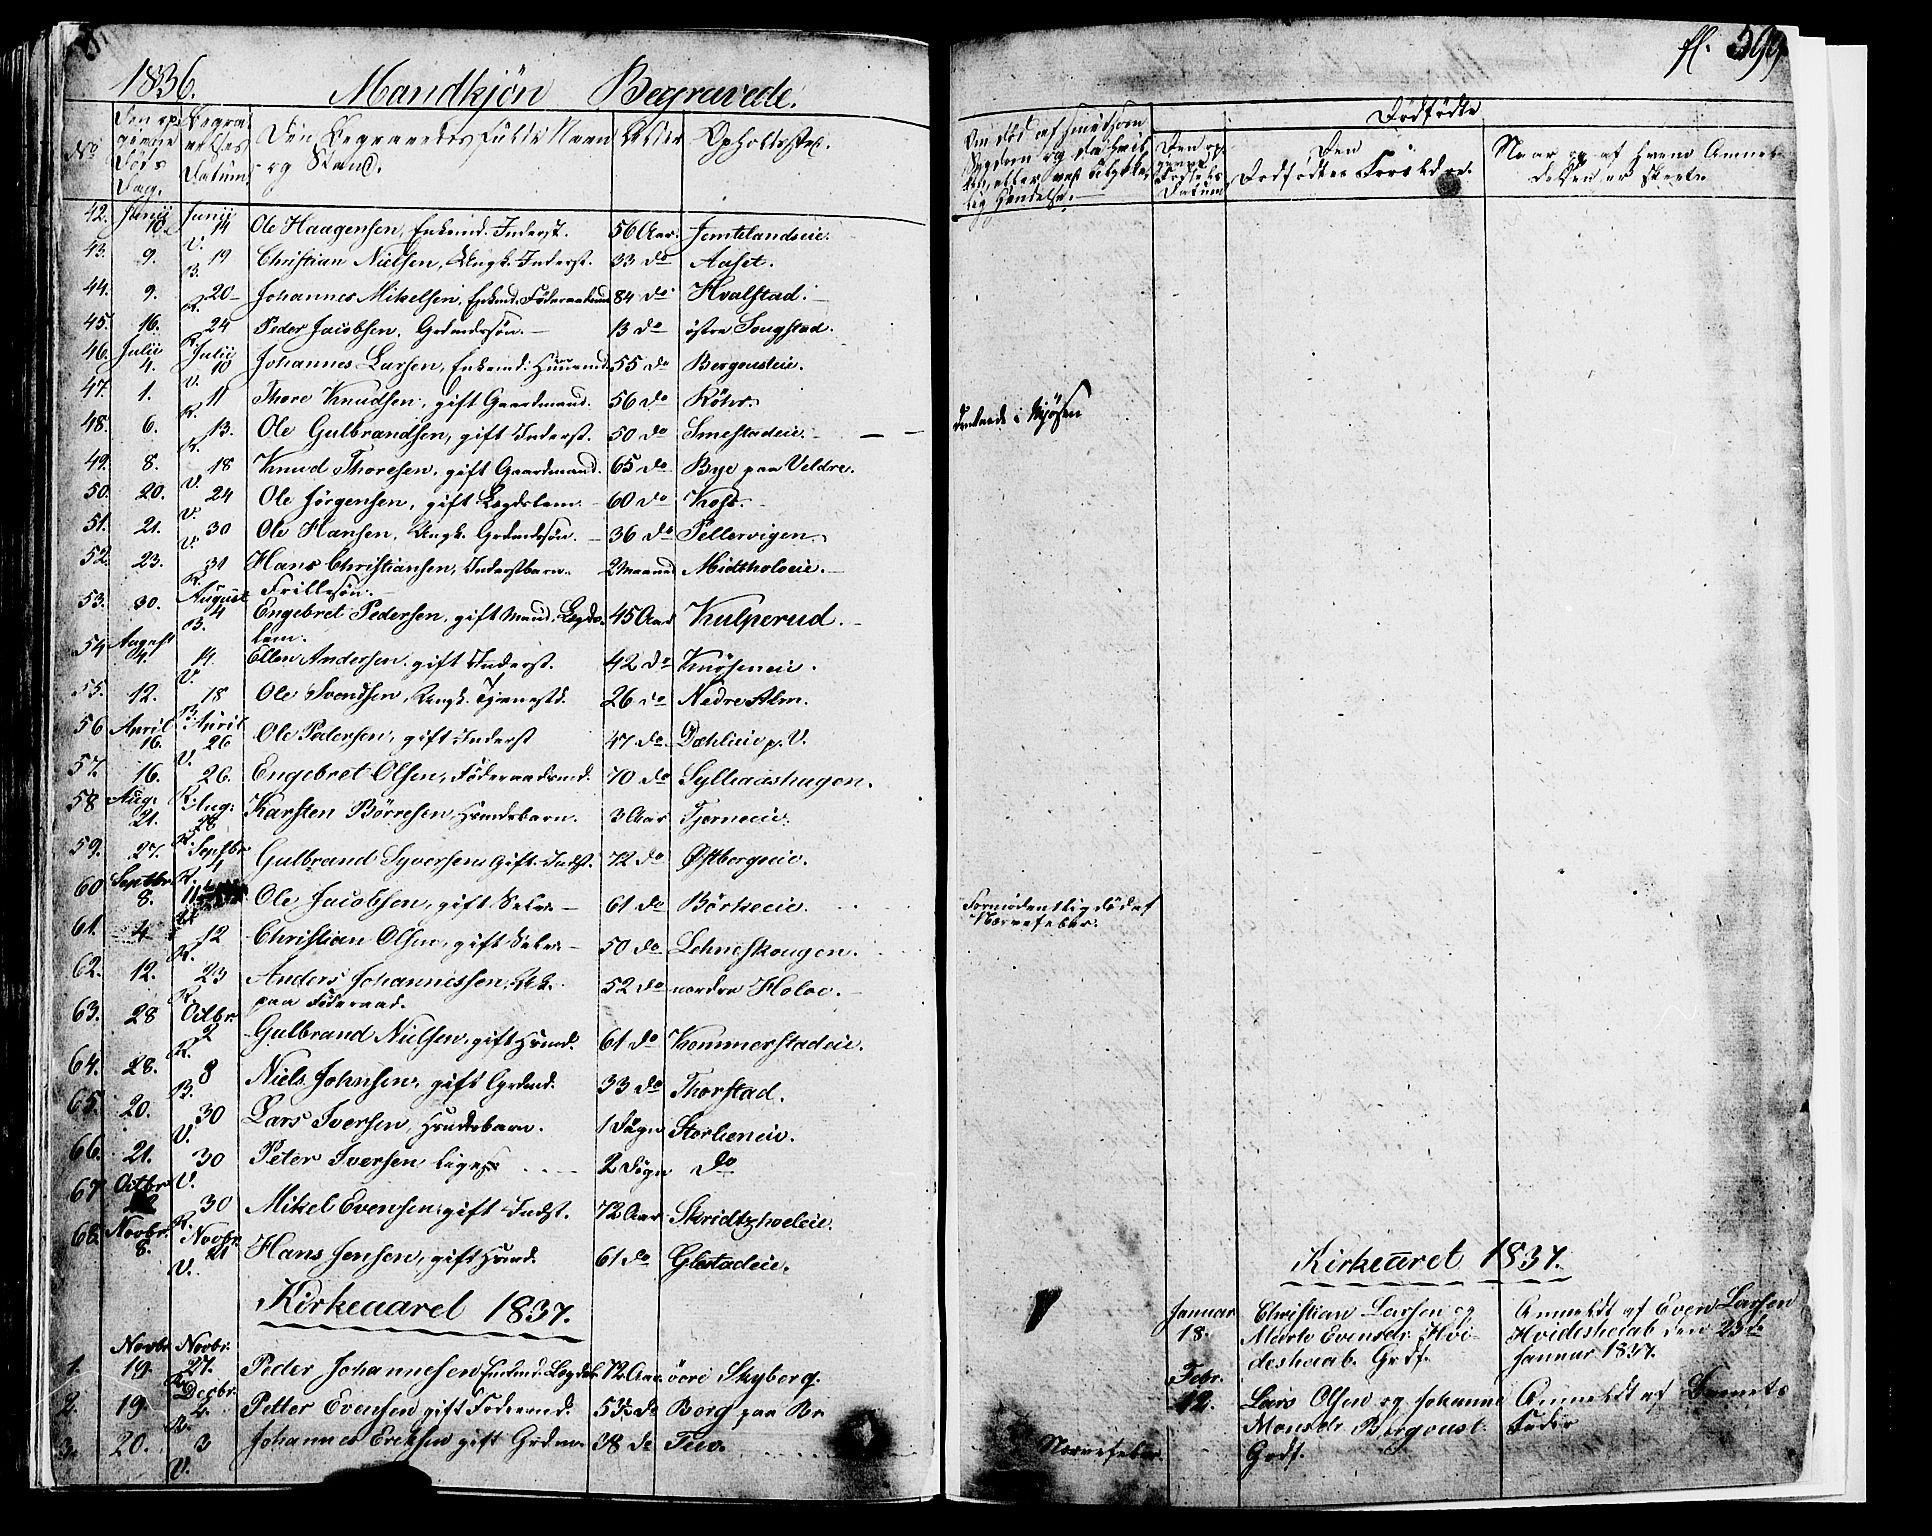 1836. Mandkjøn Begravede.
No Den op-givne Døds Dag. Begravelses Datum. Den Begravedes fulde Navn og Stand. Alder Opholdssted.
42. Junij 10. Junij 14 V. Ole Haagensen, Enkemd. Inderst. 56 Aar. Jemtelandseie.
43. 9. 19 B. Christian Nielsen, Ungk. Inderst. 33 do Aaset.
44. 9. 20 R. Johannes Mikelsen, Enkmd. Föderaadsmd 84 do Hvalstad.
45. 16. 24 R. Peder Jacobsen, Grdmdssön. 13 do östre Sougstad.
46. Julii 4. Julii 10 V. Johannes Larsen, Enkemd. Huusmd 55 do Bergouseie.
47. 1. 11 R. Thore Knudsen, gift Gaardmand. 56 do Röhr.
48. 6. 13. R. Ole Gulbrandsen, gift Inderst. 50 do Smestadeie.
49. 8. 18 V. Knud Thoresen, gift Gaardmand. 65 do Bye paa Veldre.
50. 20. 24 V. Ole Jörgensen, gift Lægdslem. 60 do
51. 21. 30 V. Ole Hansen, Ungk. Grdmdssön. 36 do Pellervigen
52. 23. 31 R. Hans Christiansen, Inderstbarn. 2 Maaned Midtholoeie.
Frillesön.
53. 30. August 4 B. Engebret Pedersen, gift Mand. Lægdslem. 45 Aar Kulperud.
54 August 4. 14. V. Ellen Andersen gift Inderst. 42 do
55. 12. 18 B. Ole Svendsen, Ungk. Tjenestk. 26 do Nedre Alm.
56 April 16. April 26 V. Ole Pedersen, gift Inderst 47 do Dæhlieie p. V.
57. 16. 26. R. Engebret Olsen, Föderaadsmd. 70 do Sylliaashagen.
58 Aug: 21. Aug: 28 R. Karsten Börresen, Hsmdsbarn. 3 Aar Tjerneeie.
59. 27. Septbr 4 R. Gulbrand Syversen gift Indst. 72 do Østbergeie.
60 Septbr 8. 11 Ole Jacobsen, gift Selv. 61 do Börkeeie.
61. 4 12 R. Christian Olsen, gift Selv. 50 do Lehneskougen.
62. 12. 23 R. Anders Johannessen,
paa Föderaad. 52 do nordre Holoe.
63. 28 Octbr. 2 R. Gulbrand Nielsen, gift Hsmd. 61 do Kommerstadeie.
64. 28. 8 B. Niels Johnsen, gift Grdmd. 33 do Thorstad.
65. 20. 30 V. Lars Iversen, Hsmdsbarn. 1 Dögn Storlieneie.
66. 21. 30 V. Peter Iversen liges 2 Dögn do
67 Octbr 22 30 R. Mikel Evensen, gift Indst. 72 Aar Skridtzhoeleie.
68. Novbr. 8. Novbr. 21 V. Hans Jensen, gift Hsmd. 61 do Glestadeie.
Kirkeaaret 1837.
1. Novbr 19. Novbr. 27. R. Peder Johannesen Enkemd. Lægdsl. 72 Aar övre Skyberg.
2. 19. Decbr. 2. R. Petter Evensen gift Föderaadmd. do Berg paa Br
3. 20. 3 V. Johannes Ericksen gift Grdm. 38 do
fl. 599
Om död af smitsom Sygdom og da hvilken, eller ved ulykkelig Hændelse.
Dödfödte
Den op-givne Dödfödsels Datum Den Dödfödtes Forældre. Naar og af hvem Anmeldelsen er skeet.
druknede i Mjösen
Formodentlig död af
Nervefeber.
Kirkeaaret 1837.
Januar 18. Christian Larsen og Anmeldt af Even Larsen
Marte Evensdr. Hvideshaab. Grdf. Hvideshaab den 23de Januar 1837.
Febr. 12. Lars Olsen og Johanne Anmeldt af Barnets
Monsdr Bergoust. Fader
Grdf.
Nervefeber.